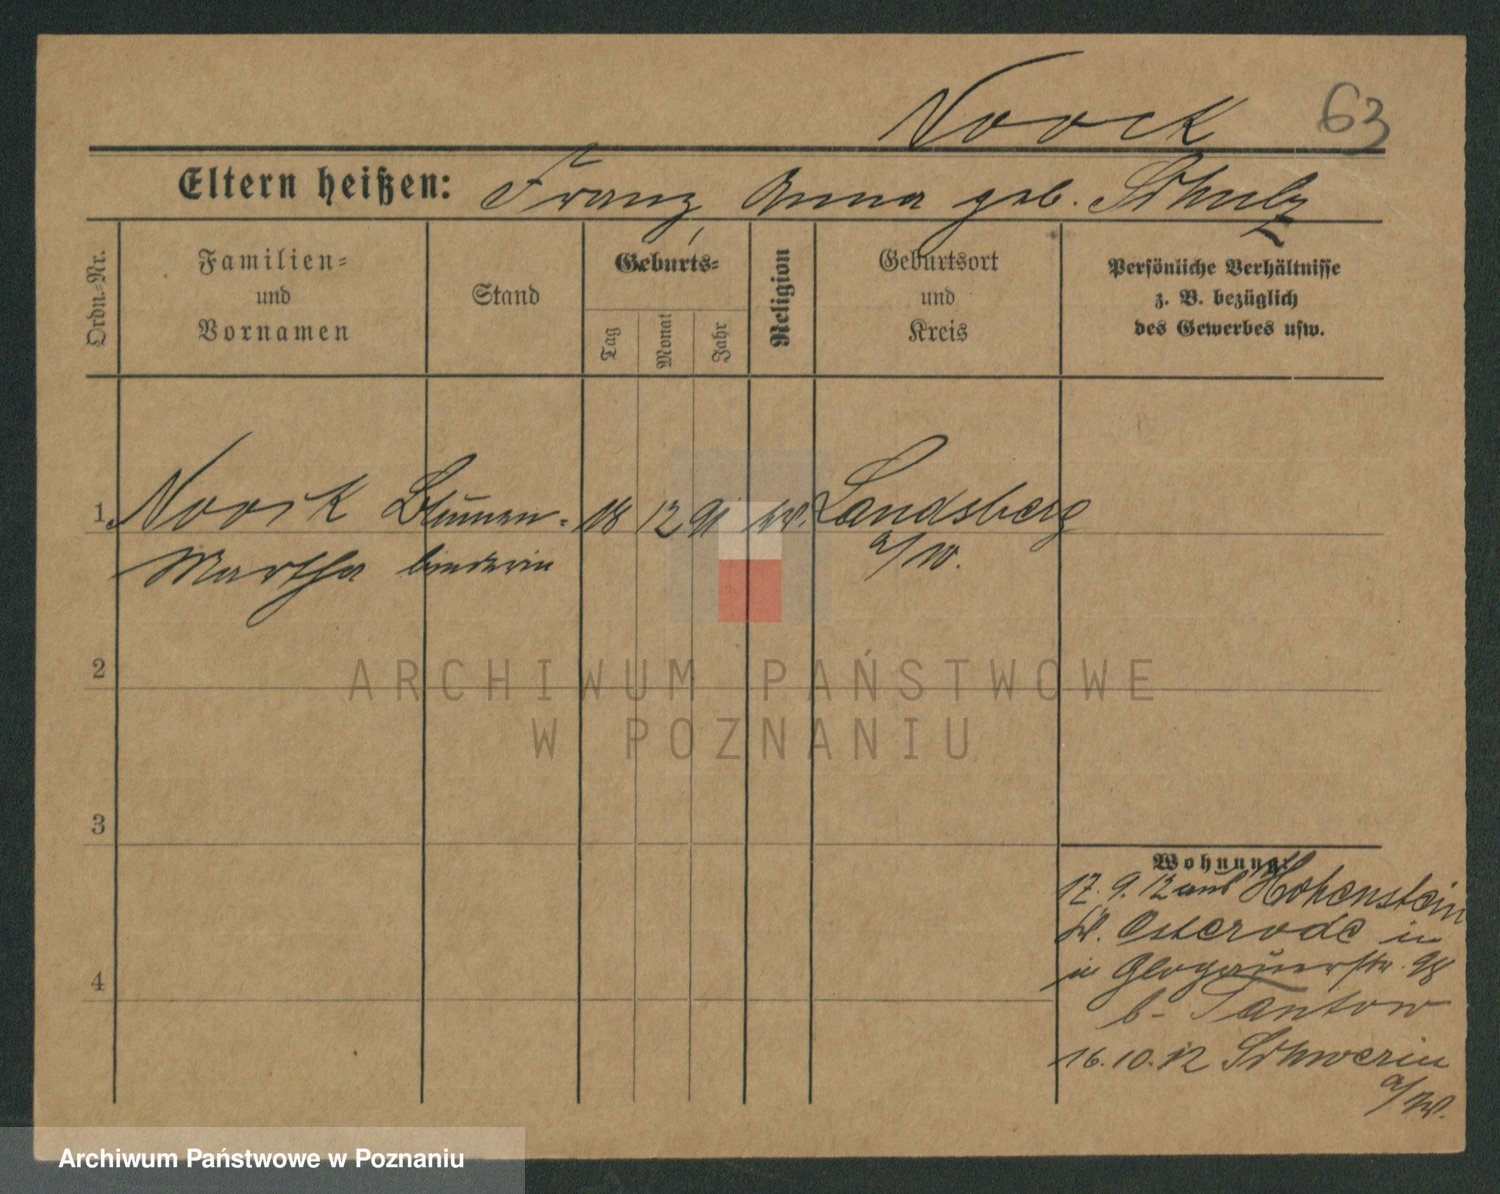 Noock 63
Eltern heißen: Franz, Anna geb. Schulz
Ordn.-Nr.
Familien-
und
Vornamen
Stand
Geburts-
Tag
Monat
Jahr
Religion
Geburtsort
und
Kreis
Persönliche Verhältnisse
z. B. bezüglich
des Gewerbes usw.
1 Noock Blumen- 18 12 91 Landsberg
Martha binderin a/W.
2
ARCHIWUM PAŃSTWOWE
W POZNANIU
3
Wohnung:
17. 9. 12 aus Hohenstein
Osterode in
in Glogauerstr. 98
b- Tantow
16. 10. 12 Schwerin
a/W.
4
Archiwum Państwowe w Poznaniu